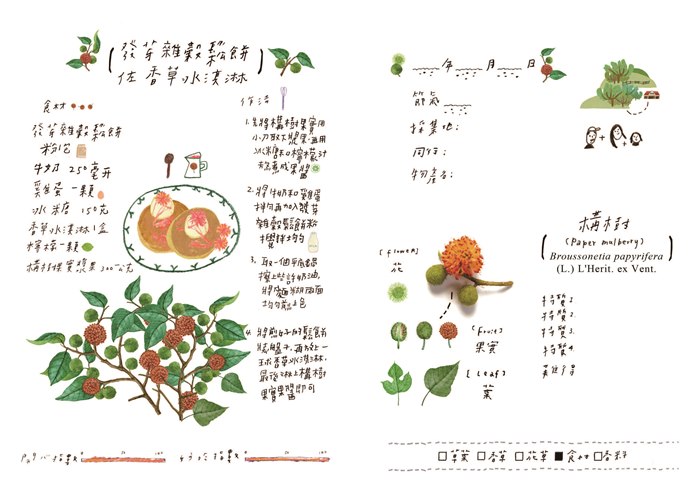 發芽雜穀鬆餅
佐香草冰淇淋
食材
發芽雜穀鬆餅
粉1包
牛奶 250毫升
雞蛋一顆
冰糖 150克
香草冰淇淋1盒
檸檬一顆
構樹果實漿果300公克
作法
1. 先將構樹果實用
小刀取下漿果，再用
冰糖和檸檬汁
熬煮成果醬
2. 將牛奶和雞蛋
拌勻再加入發芽
雜穀鬆餅粉
攪拌均勻
3. 取一個平底鍋
擦上些許奶油，
將麵糊兩面
均勻煎上色
4. 將煎好的鬆餅
裝盤子，再放上一
球香草冰淇淋，
最後淋上構樹
果實果醬即可
0 50 100
0 50 100
年 月 日
節氣
採集地：
同行：
物產者：
構樹
(Paper mulberry)
Broussonetia papyrifera
(L.) L'Herit. ex Vent.
[flower]
花
[Fruit]
果實
[Leaf]
葉
特質1
特質2
特質3.
特質4
□薑葉 □香草 □花草 ■食材 □香料